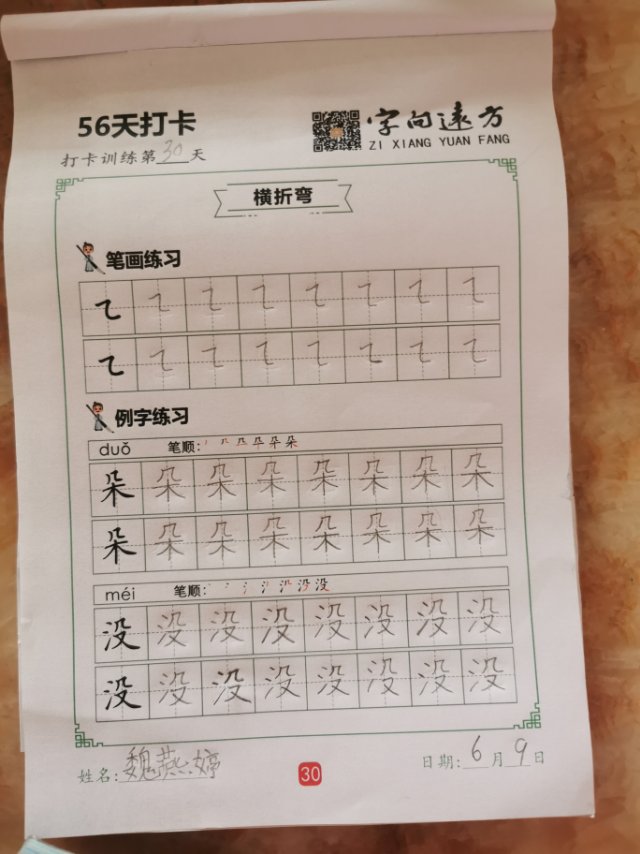 56天打卡
字向远方
ZI XIANG YUAN FANG
打卡训练第30天
横折弯
笔画练习
㇍㇍㇍㇍㇍㇍㇍㇍
㇍㇍㇍㇍㇍㇍㇍㇍
例字练习
duǒ 笔顺:
朵朵朵朵朵朵朵朵
朵朵朵朵朵朵朵朵
méi 笔顺:
没没没没没没没没
没没没没没没没没
姓名:魏燕婷
30
日期:6月9日